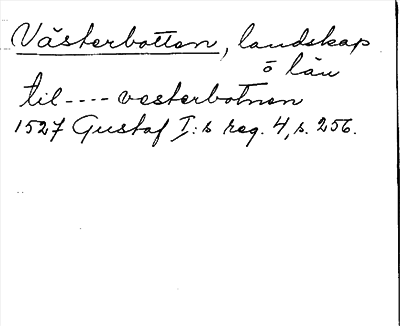 Västerbotten, landskap
o län
til ---- vesterbotnen
1527 Gustaf I:s reg. 4, s. 256.